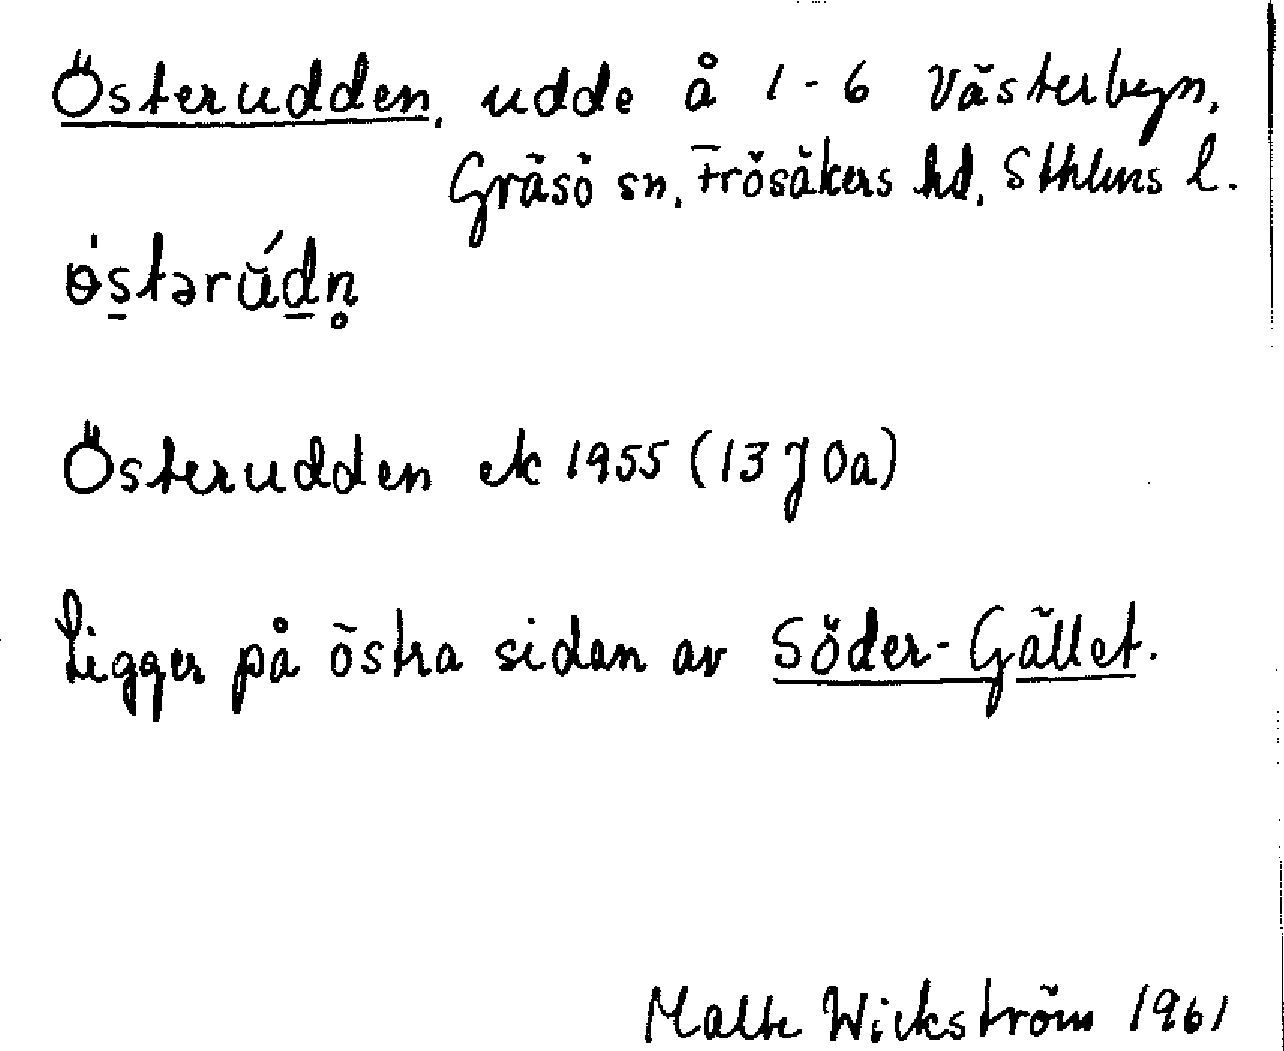 Österudden, udde å 1-6 Västerbyn,
Gräsö sn, Frösåkers hd, Sthlms l.
Österudden ek 1955 (13 J 0a)
Ligger på östra sidan av Söder-Gället.
Malte Wickström 1961